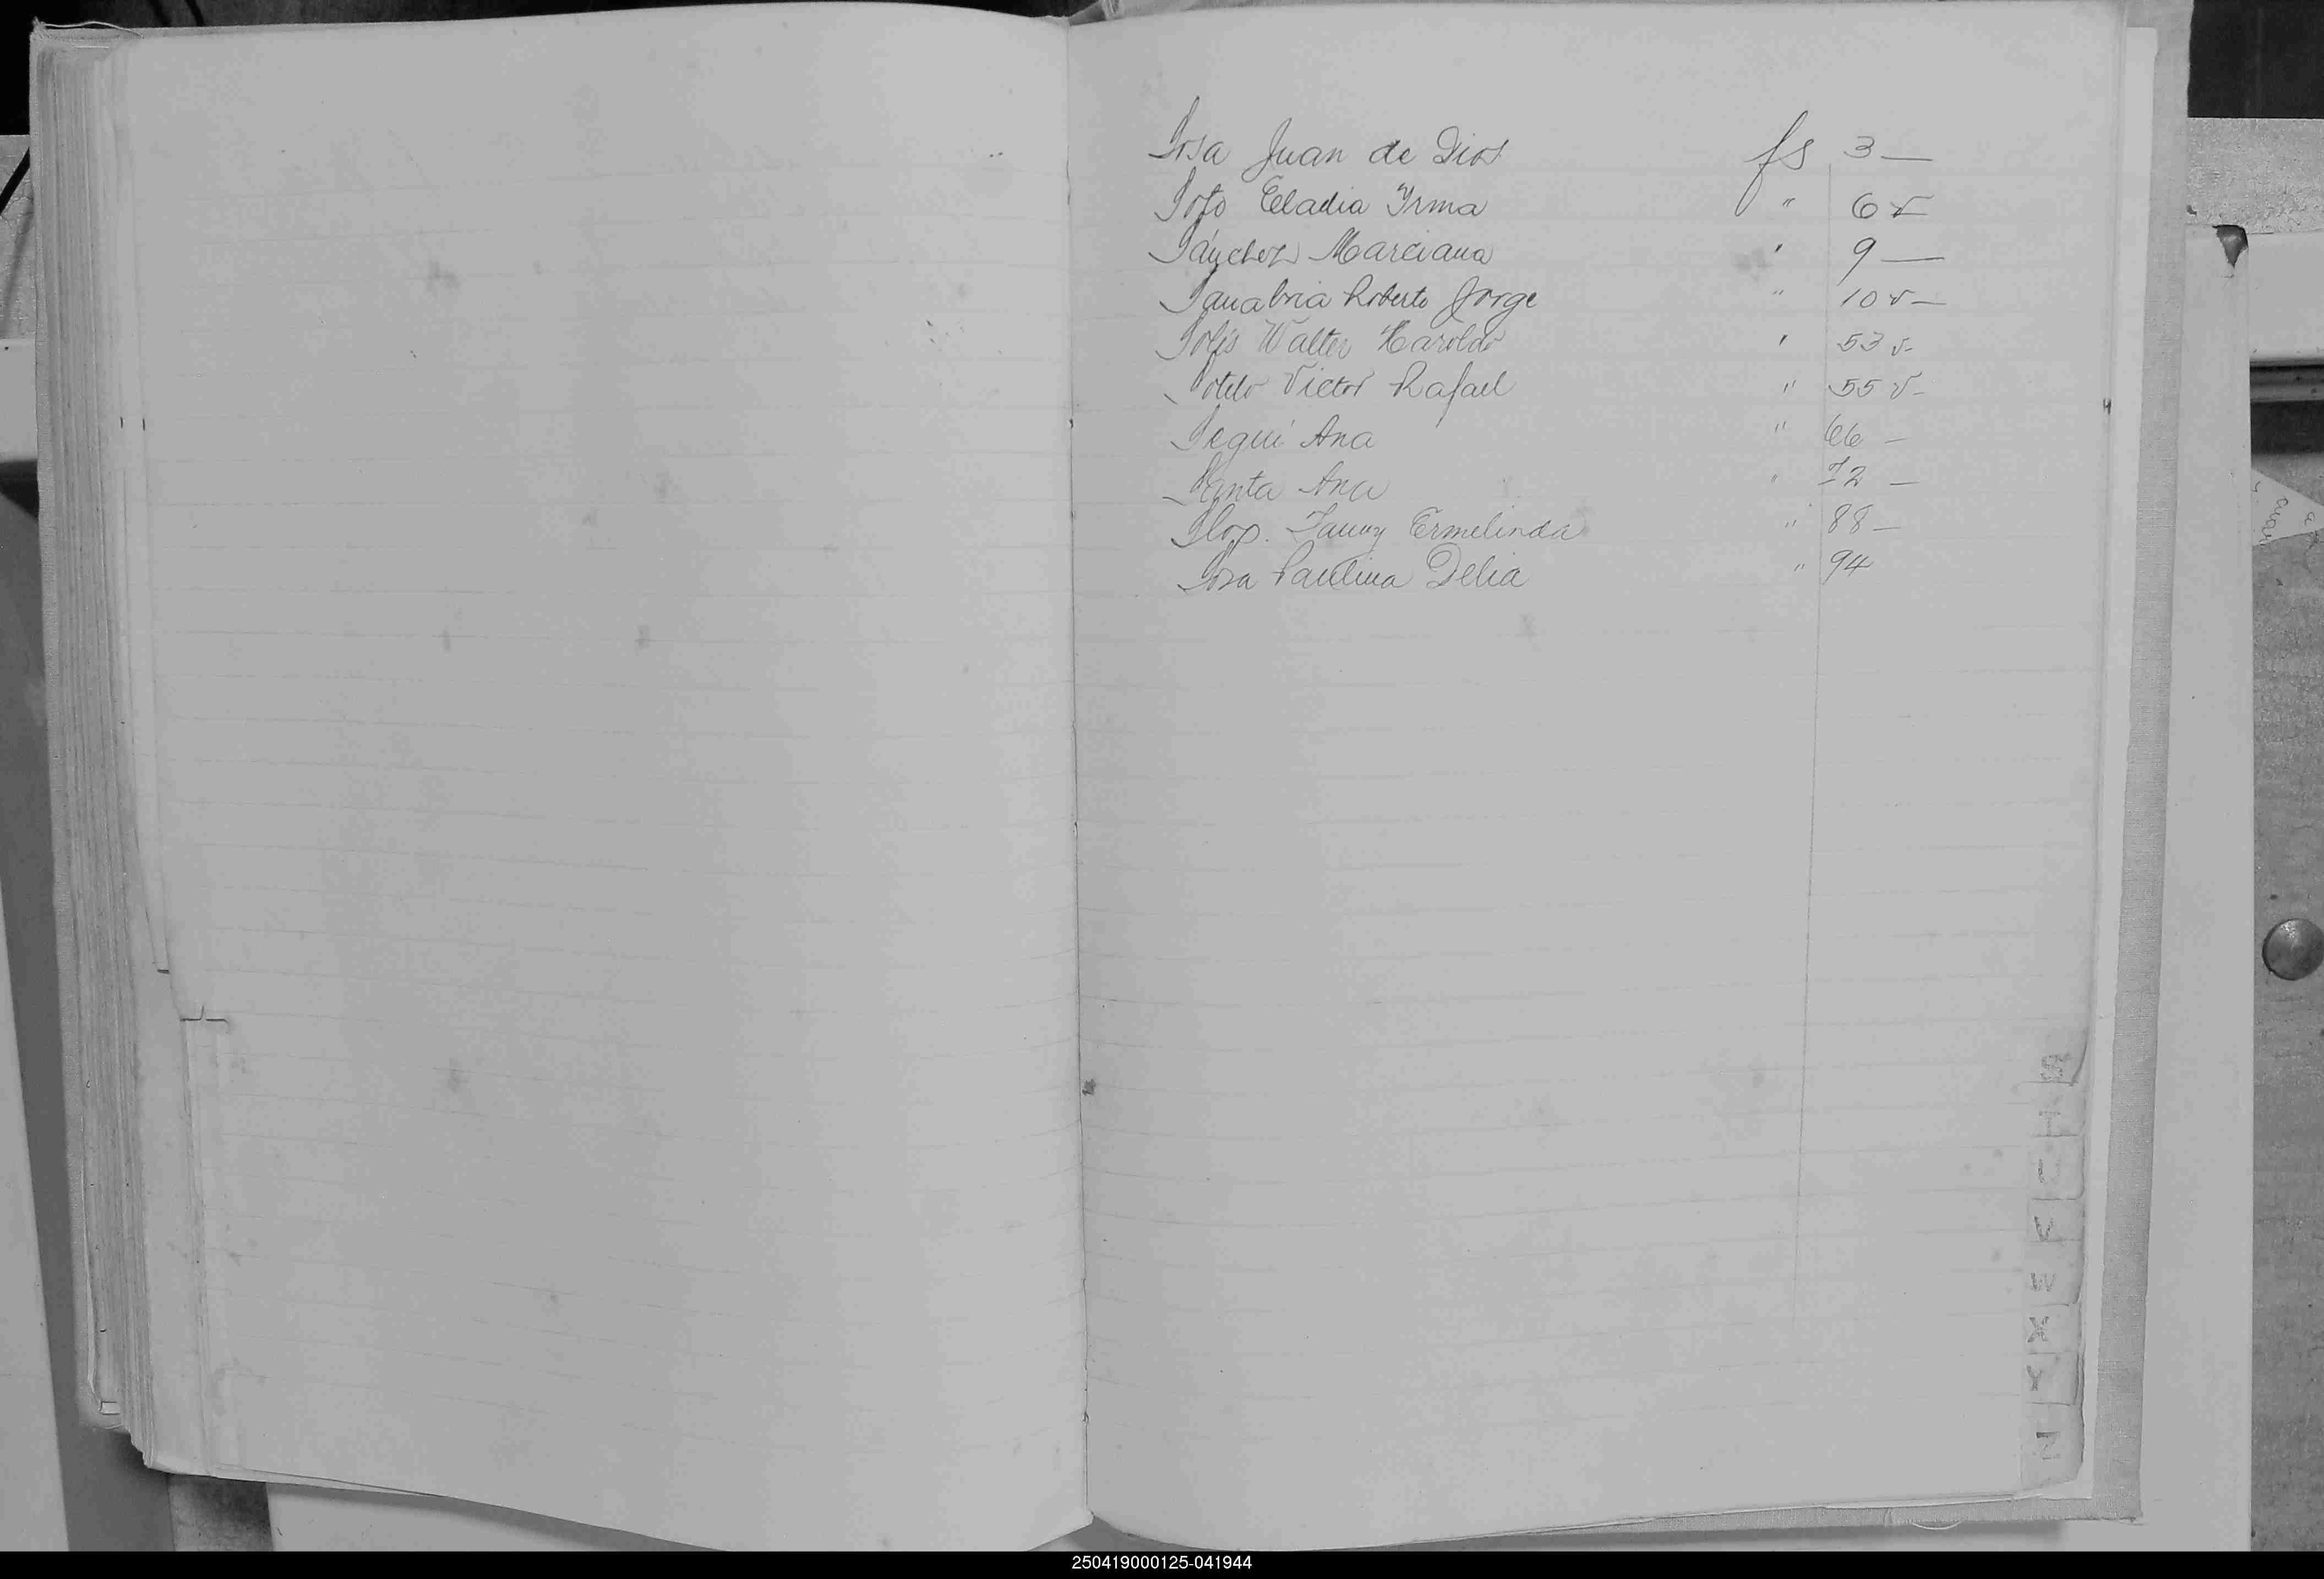 Sosa Juan de Dios fs 3 —
Soto Eladia Yrma " 6 v —
Sánchez Marciana " 9 —
Sanabria Roberto Jorge " 10 v —
Solis Walter Haroldo " 53 v -
Sotelo Victor Rafael " 55 v -
Seguí Ana " 66 —
Santa Ana " 72 —
Slop. Fanny Ermelinda " 88 —
Sosa Paulina Delia " 94
S
T
U
V
W
X
Y
Z
250419000125-041944